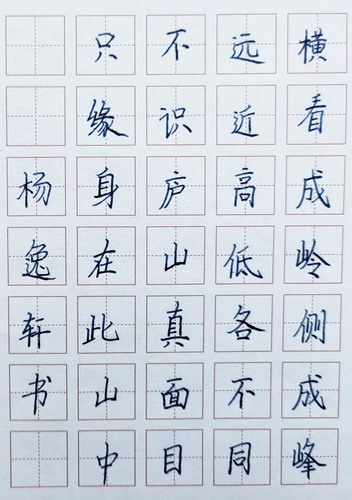 横看成岭侧成峰
远近高低各不同
不识庐山真面目
只缘身在此山中
杨逸轩书